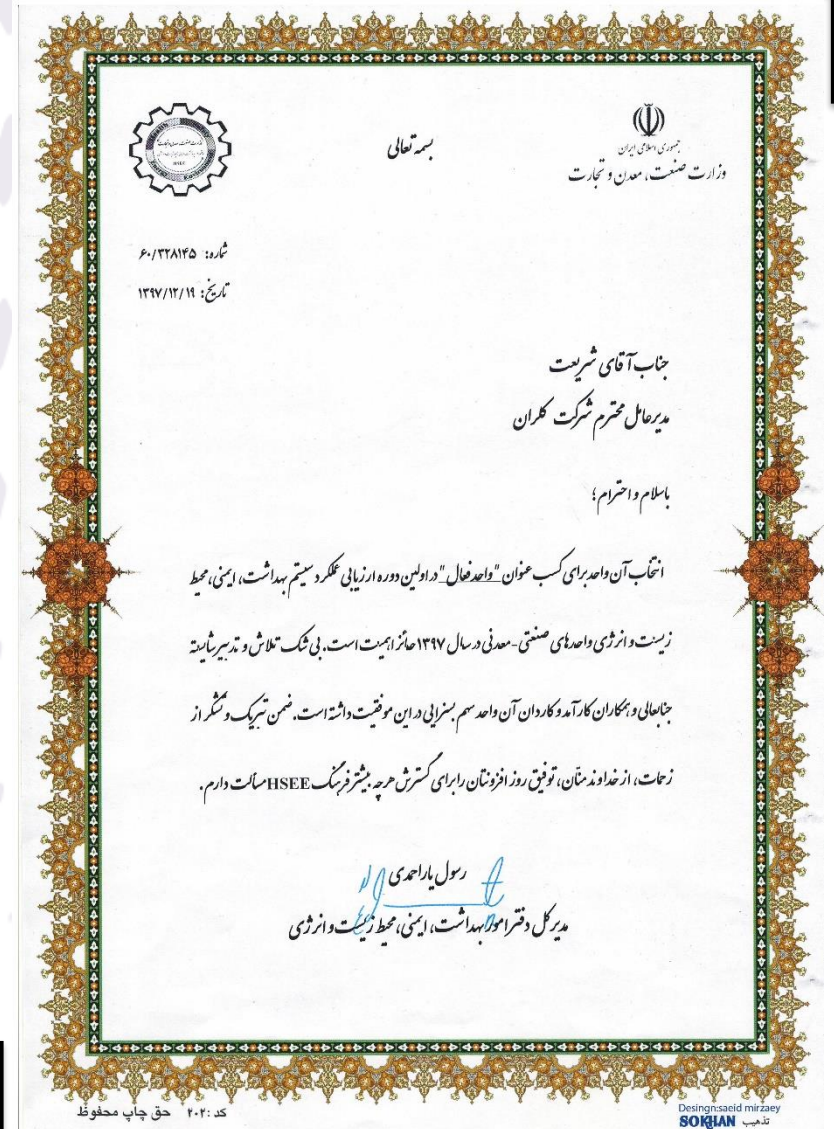 جمهوری اسلامی ایران
وزارت صنعت، معدن و تجارت
بسمه تعالی
HSEE
شماره: ۶۰/۳۲۸۱۴۵
تاریخ: ۱۳۹۷/۱۲/۱۹
جناب آقای شریعت
مدیرعامل محترم شرکت کلران
باسلام و احترام؛
انتخاب آن واحد برای کسب عنوان "واحد فعال" در اولین دوره ارزیابی عملکرد سیستم بهداشت، ایمنی، محیط
زیست و انرژی واحدهای صنعتی-معدنی در سال ۱۳۹۷ حائز اهمیت است. بی شک تلاش و تدبیر شایسته
جنابعالی و همکاران کارآمد و کاردان آن واحد سهم بسزایی در این موفقیت داشته است. ضمن تبریک و تشکر از
زحمات، از خداوند منّان، توفیق روز افزونتان را برای گسترش هرچه بیشتر فرهنگ HSEE مسألت دارم.
رسول یاراحمدی
مدیرکل دفتر امور بهداشت، ایمنی، محیط زیست و انرژی
کد :۲۰۲ حق چاپ محفوظ
Desingn:saeid mirzaey
تذهیب SOKHAN